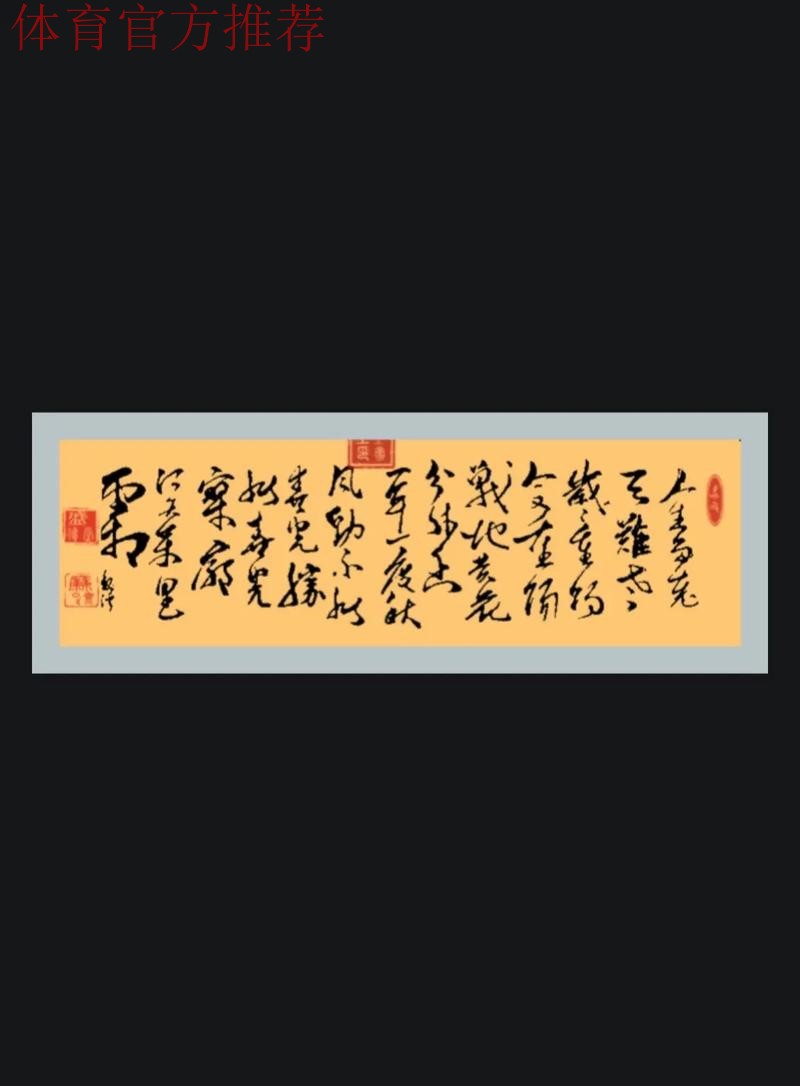 体育官方推荐
人生易老
天難老
歲々重陽
今又重陽
戰地黄花
分外香
一年一度秋
風勁不似
春光勝
似春光
寥廓
江天萬里
霜